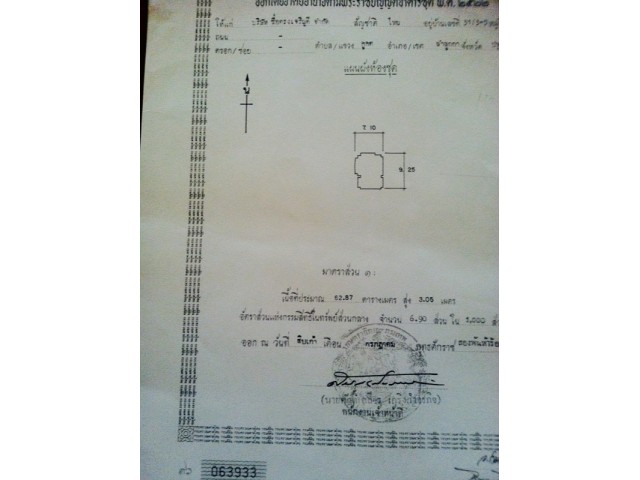 ออกโดยอาศัยอำนาจตามพระราชบัญญัติอาคารชุด พ.ศ. ๒๕๒๒
ให้แก่ บริษัท จำกัด สัญชาติ ไทย อยู่บ้านเลขที่
ถนน -
ตรอก/ซอย - ตำบล/แขวง คูคต อำเภอ/เขต ลำลูกกา จังหวัด
แผนผังห้องชุด
น
7.10
9.25
มาตราส่วน ๑:
เนื้อที่ประมาณ 62.87 ตารางเมตร สูง 3.05 เมตร
อัตราส่วนแห่งกรรมสิทธิ์ในทรัพย์ส่วนกลาง จำนวน 6.90 ส่วน ใน 1,000
ออก ณ วันที่ สิบเก้า เดือน กรกฎาคม พุทธศักราช สองพันห้าร้อย
พนักงานเจ้าหน้าที่
063933